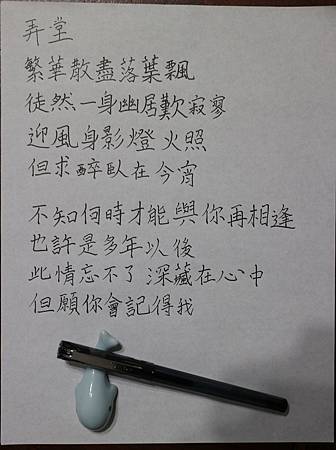 弄堂
繁華散盡落葉飄
徒然一身幽居歎寂寥
迎風身影燈火照
但求醉臥在今宵
不知何時才能與你再相逢
也許是多年以後
此情忘不了深藏在心中
但願你會記得我